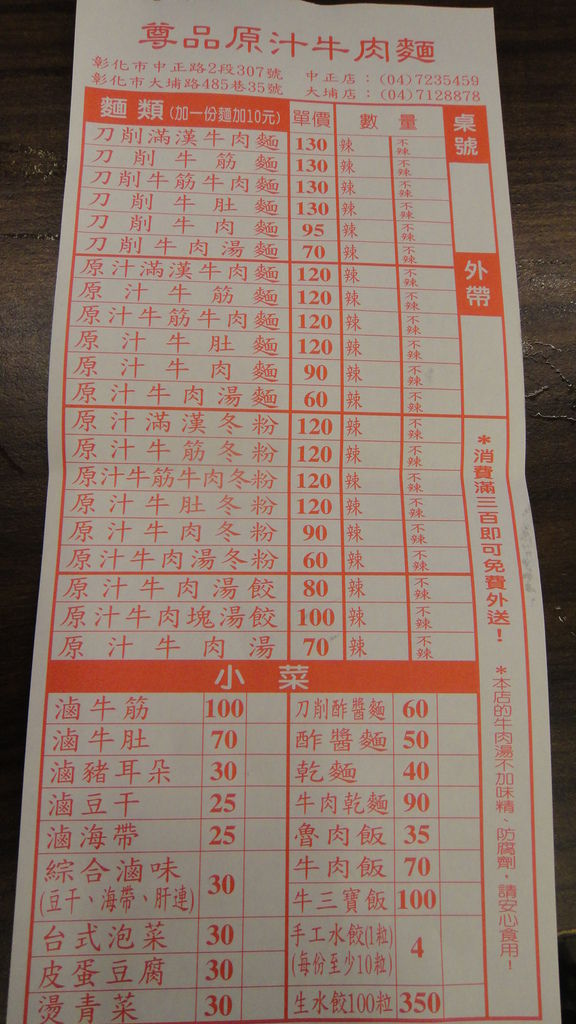 尊品原汁牛肉麵
彰化市中正路2段307號 中正店：(04)7235459
彰化市大埔路485巷35號 大埔店：(04)7128878
麵類(加一份麵加10元) 單價 數量 桌號
刀削滿漢牛肉麵 130 辣 不辣
刀削牛筋麵 130 辣 不辣
刀削牛筋牛肉麵 130 辣 不辣
刀削牛肚麵 130 辣 不辣
刀削牛肉麵 95 辣 不辣
刀削牛肉湯麵 70 辣 不辣
外帶
原汁滿漢牛肉麵 120 辣 不辣
原汁牛筋麵 120 辣 不辣
原汁牛筋牛肉麵 120 辣 不辣
原汁牛肚麵 120 辣 不辣
原汁牛肉麵 90 辣 不辣
原汁牛肉湯麵 60 辣 不辣
原汁滿漢冬粉 120 辣 不辣
原汁牛筋冬粉 120 辣 不辣
原汁牛筋牛肉冬粉 120 辣 不辣
原汁牛肚冬粉 120 辣 不辣
原汁牛肉冬粉 90 辣 不辣
原汁牛肉湯冬粉 60 辣 不辣
原汁牛肉湯餃 80 辣 不辣
原汁牛肉塊湯餃 100 辣 不辣
原汁牛肉湯 70 辣 不辣
*消費滿三百即可免費外送！
*本店的牛肉湯不加味精、防腐劑，請安心食用！
小菜
滷牛筋 100 刀削酢醬麵 60
滷牛肚 70 酢醬麵 50
滷豬耳朵 30 乾麵 40
滷豆干 25 牛肉乾麵 90
滷海帶 25 魯肉飯 35
綜合滷味 30 牛肉飯 70
(豆干、海帶、肝連) 牛三寶飯 100
台式泡菜 30 手工水餃(1粒) 4
皮蛋豆腐 30 (每份至少10粒)
燙青菜 30 生水餃100粒 350